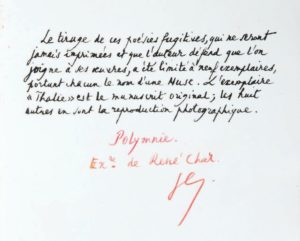 Le tirage de ces poésies fugitives, qui ne seront
jamais imprimées et que l'auteur défend que l'on
joigne à ses œuvres, a été limité à neuf exemplaires,
portant chacun le nom d'une Muse. L'exemplaire
"Thalie" est le manuscrit original ; les huit
autres en sont la reproduction photographique.
Polymnie.
Exre de René Char.